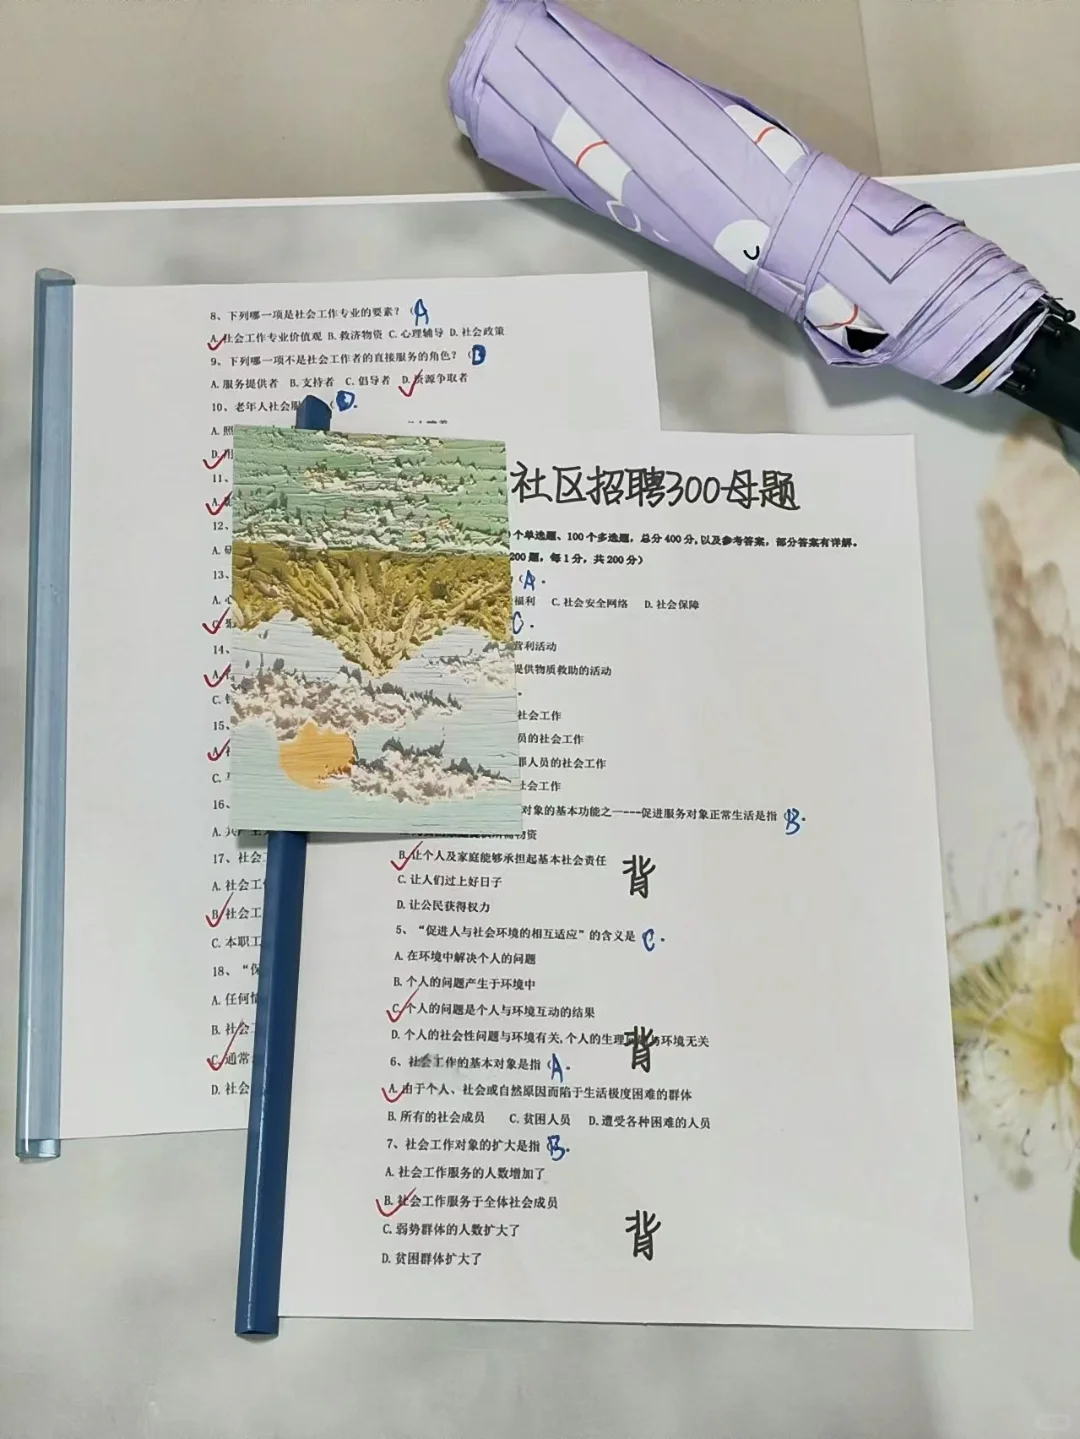 8、下列哪一项是社会工作专业的要素？（A
A.社会工作专业价值观 B.救济物资 C.心理辅导 D.社会政策
9、下列哪一项不是社会工作者的直接服务的角色？（D
A.服务提供者 B.支持者 C.倡导者 D.资源争取者
10、老年人社会服 （D.
A.照
D.
11、
A.
12、
A.研
13、
A.心
C.
14、
A.
C.
15、
A.
C.
16、
A.
17、社会
A.社会工
B.社会工
C.本职工
18、“保
A.任何情
B.社会工
C.通常
D.社会
社区招聘300母题
个单选题、100个多选题，总分400分,以及参考答案，部分答案有详解。
200题，每1分，共200分）
（A.
福利 C.社会安全网络 D.社会保障
C.
营利活动
提供物质救助的活动
社会工作
员的社会工作
罪人员的社会工作
社会工作
对象的基本功能之一---促进服务对象正常生活是指（B.
物资
B.让个人及家庭能够承担起基本社会责任
背
C.让人们过上好日子
D.让公民获得权力
5、“促进人与社会环境的相互适应”的含义是 C.
A.在环境中解决个人的问题
B.个人的问题产生于环境中
C.个人的问题是个人与环境互动的结果
D.个人的社会性问题与环境有关,个人的生理 与环境无关
背
6、社会工作的基本对象是指（A.
A.由于个人、社会或自然原因而陷于生活极度困难的群体
B.所有的社会成员 C.贫困人员 D.遭受各种困难的人员
7、社会工作对象的扩大是指 B.
A.社会工作服务的人数增加了
B.社会工作服务于全体社会成员
C.弱势群体的人数扩大了
背
D.贫困群体扩大了